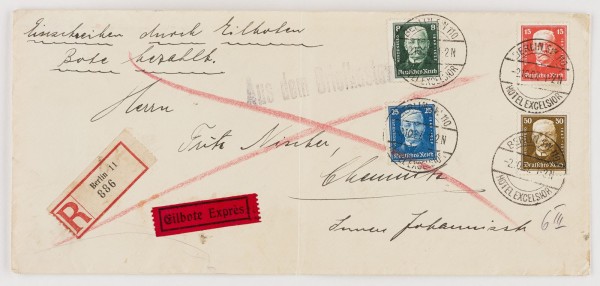 Einschreiben durch Eilboten
Bote bezahlt.
Aus dem Briefkasten
Herrn
Fritz Nischer,
Chemnitz
Innere Johannisstr
6 III
R
Berlin 11
886
Eilbote Exprès
8 8
Deutsches Reich
15 15
Deutsches Reich
25 25
Deutsches Reich
50 50
Deutsches Reich
BERLIN
HOTEL EXCELSIOR
BERLIN
HOTEL EXCELSIOR
EXCELSIOR